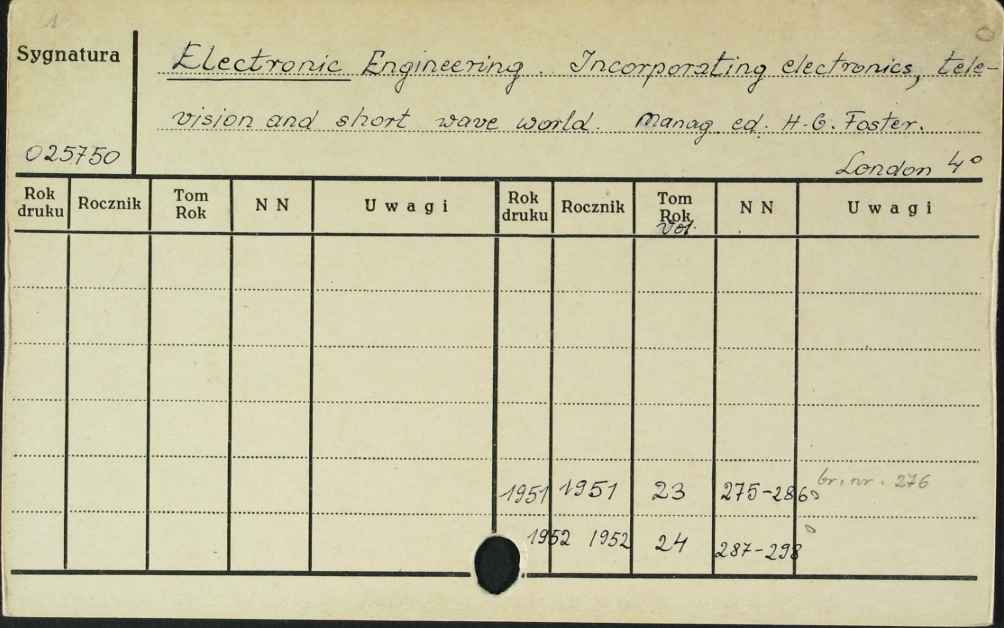 1
Sygnatura
Electronic Engineering. Incorporating electronics, tele-
vision and short wave world. Manag. ed. H.G. Foster.
025750
London 4°
Rok druku Rocznik Tom Rok NN Uwagi Rok druku Rocznik Tom Rok Vol. NN Uwagi
1951 1951 23 275-286 br. nr. 276
1952 1952 24 287-298